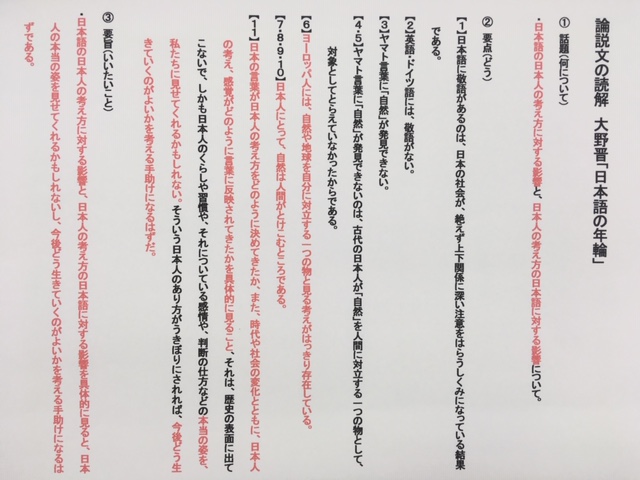 論説文の読解　大野晋「日本語の年輪」
① 話題(何について)
・日本語の日本人の考え方に対する影響と、日本人の考え方の日本語に対する影響について。
② 要点(どう)
【1】日本語に敬語があるのは、日本の社会が、絶えず上下関係に深い注意をはらうしくみになっている結果
である。
【2】英語・ドイツ語には、敬語がない。
【3】ヤマト言葉に「自然」が発見できない。
【4・5】ヤマト言葉に「自然」が発見できないのは、古代の日本人が「自然」を人間に対立する一つの物として、
対象としてとらえていなかったからである。
【6】ヨーロッパ人には、自然や地球を自分に対立する一つの物と見る考えがはっきり存在している。
【7・8・9・10】日本人にとって、自然は人間がとけこむところである。
【11】日本の言葉が日本人の考え方をどのように決めてきたか、また、時代や社会の変化とともに、日本人
の考え、感覚がどのように言葉に反映されてきたかを具体的に見ること、それは、歴史の表面に出て
こないで、しかも日本人のくらしや習慣や、それについている感情や、判断の仕方などの本当の姿を、
私たちに見せてくれるかもしれない。そういう日本人のあり方がうきぼりにされれば、今後どう生
きていくのがよいかを考える手助けになるはずだ。
③ 要旨(いいたいこと)
・日本語の日本人の考え方に対する影響と、日本人の考え方の日本語に対する影響を具体的に見ると、日本
人の本当の姿を見せてくれるかもしれないし、今後どう生きていくのがよいかを考える手助けになるは
ずである。